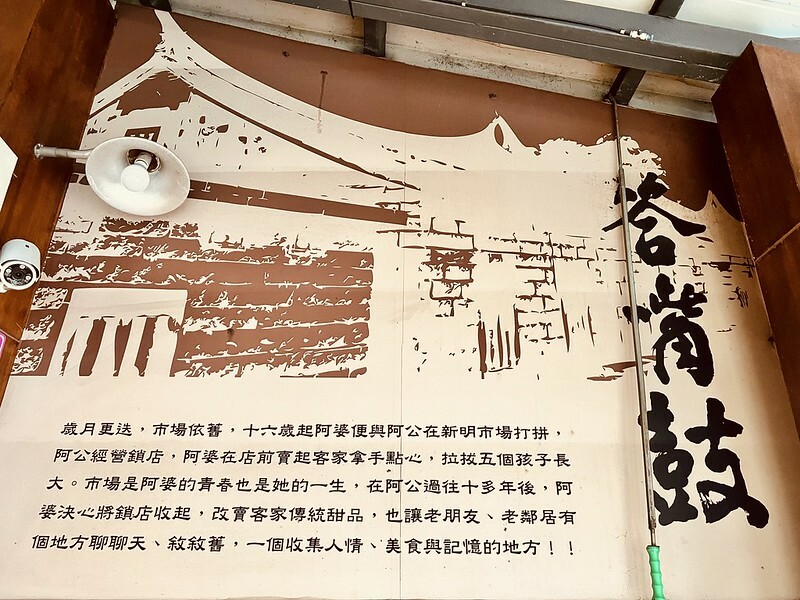 答嘴鼓
歲月更迭，市場依舊，十六歲起阿婆便與阿公在新明市場打拼，
阿公經營鎖店，阿婆在店前賣起客家拿手點心，拉拔五個孩子長
大。市場是阿婆的青春也是她的一生，在阿公過往十多年後，阿
婆決心將鎖店收起，改賣客家傳統甜品，也讓老朋友、老鄰居有
個地方聊聊天、敘敘舊，一個收集人情、美食與記憶的地方！！